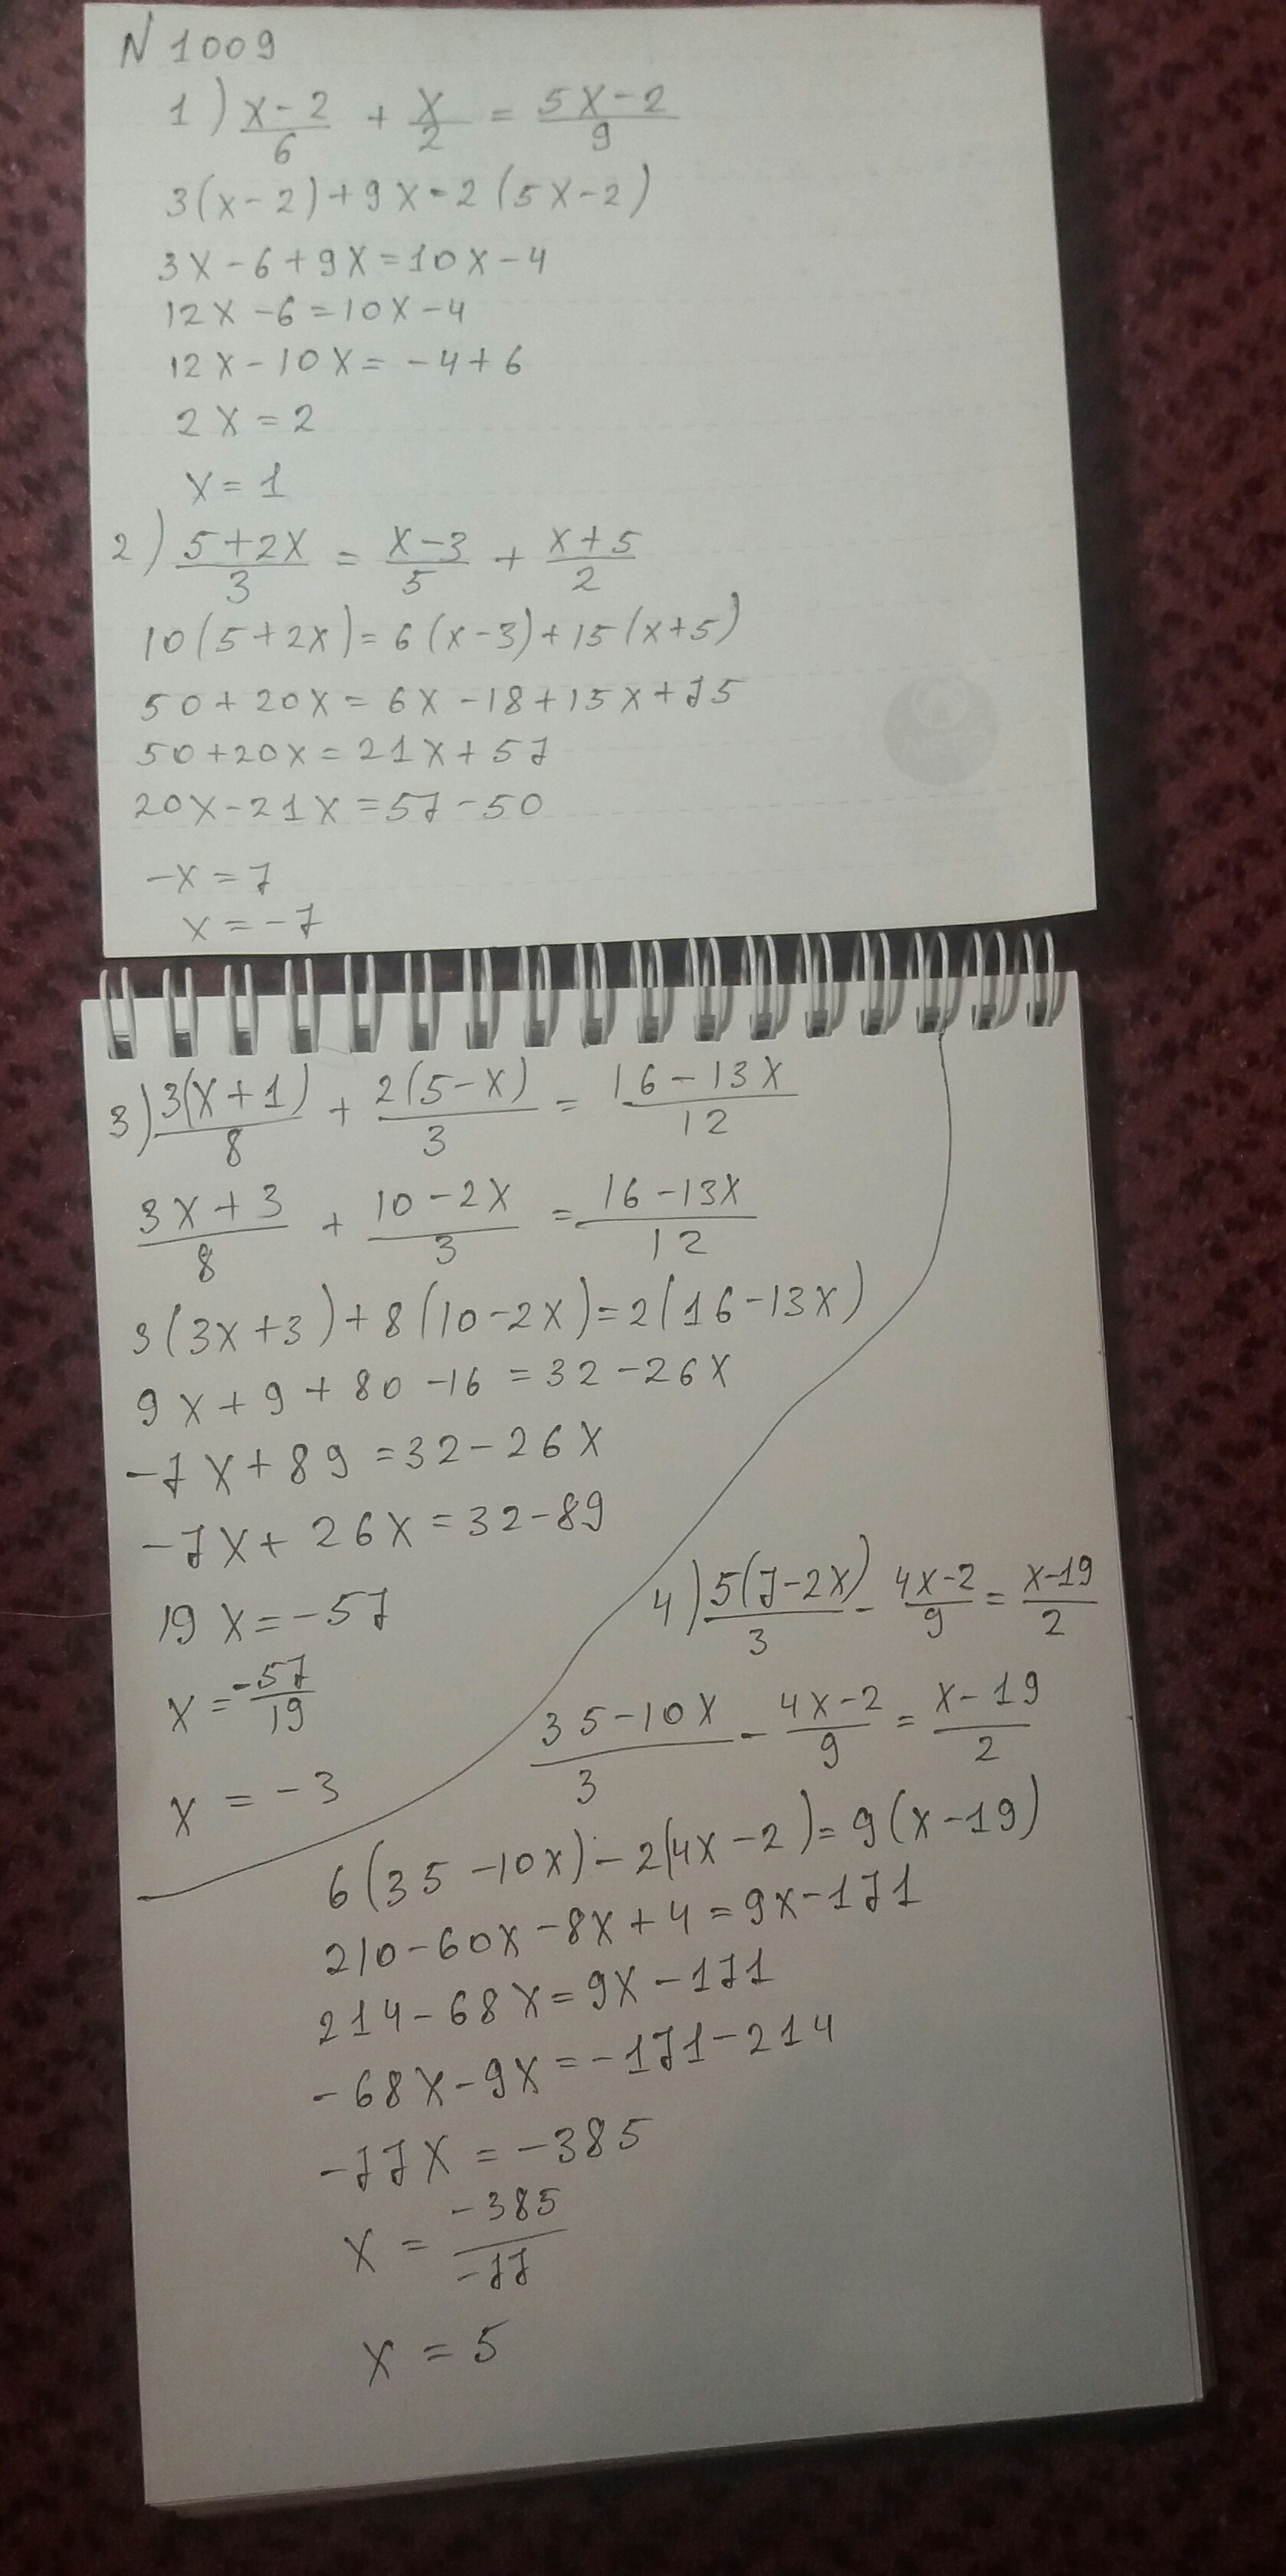 N 1009
1) (x-2)/6 + x/2 = (5x-2)/9
3(x-2)+9x=2(5x-2)
3x-6+9x=10x-4
12x-6=10x-4
12x-10x=-4+6
2x=2
x=1
2) (5+2x)/3 = (x-3)/5 + (x+5)/2
10(5+2x)=6(x-3)+15(x+5)
50+20x=6x-18+15x+75
50+20x=21x+57
20x-21x=57-50
-x=7
x=-7
3) 3(x+1)/8 + 2(5-x)/3 = (16-13x)/12
(3x+3)/8 + (10-2x)/3 = (16-13x)/12
3(3x+3)+8(10-2x)=2(16-13x)
9x+9+80-16=32-26x
-7x+89=32-26x
-7x+26x=32-89
19x=-57
x=-57/19
x=-3
4) 5(7-2x)/3 - (4x-2)/9 = (x-19)/2
(35-10x)/3 - (4x-2)/9 = (x-19)/2
6(35-10x)-2(4x-2)=9(x-19)
210-60x-8x+4=9x-171
214-68x=9x-171
-68x-9x=-171-214
-77x=-385
x=-385/-77
x=5